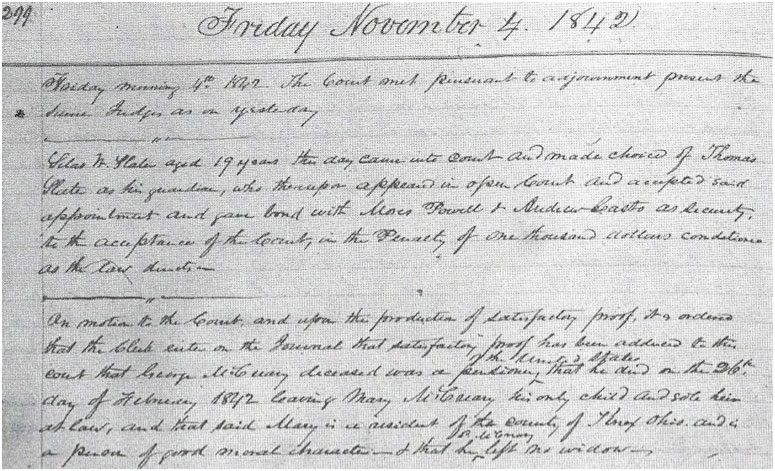 299
Friday November 4. 1842
Friday morning 4th 1842. The Court met pursuant to adjournment present the
same Judges as on yesterday
Silas W. Slater aged 19 years this day came into court and made choice of Thomas
Slate as his guardian, who thereupon appeared in open Court and accepted said
appointment and gave bond with Moses Powell & Andrew Casto as security,
to the acceptance of the Court, in the Penalty of one thousand dollars conditioned
as the law directs
On motion to the Court, and upon the production of satisfactory proof, it is ordered
that the Clerk enter on the Journal that satisfactory proof has been adduced to this
of the United States
court that George McCreary deceased was a pensioner, that he died on the 26th
day of February 1842 leaving Mary McCreary his only child and sole heir
at law, and that said Mary is a resident of the county of Knox Ohio. and is
G. McCreary
a person of good moral character — & that he left no widow —